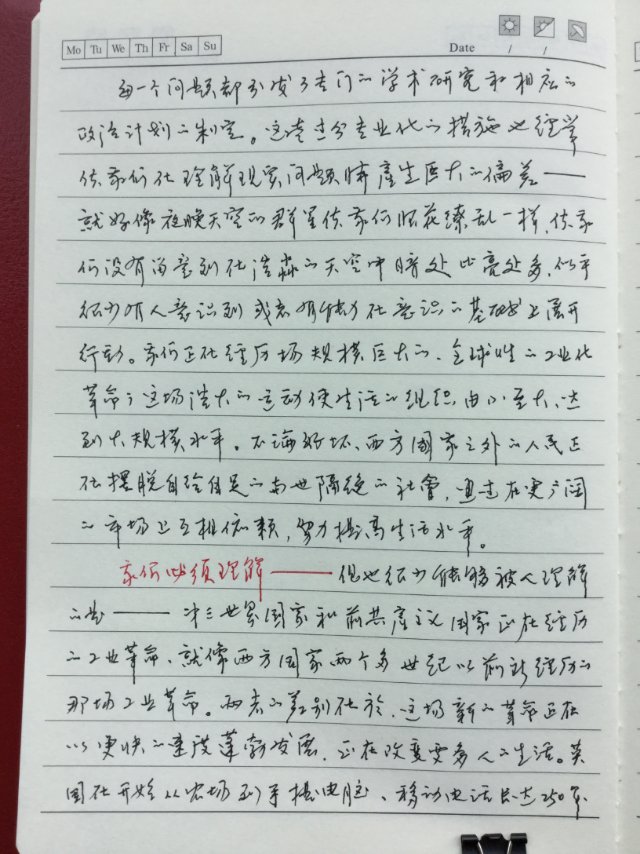 Mo Tu We Th Fr Sa Su
Date / /
每一个问题都引发了专门的学术研究和相应的
政治计划的制定。这些过分专业化的措施也经常
使我们在理解现实问题时產生巨大的偏差——
就好像夜晚天空的群星使我们眼花缭乱一样,使我
们没有留意到在浩淼的天空中暗处比亮处多,似乎
很少有人意识到或者有能力在意识的基础上展开
行动。我们正在经历一场规模巨大的、全球性的工业化
革命;这场浩大的运动使生活的组织由小至大,达
到大规模水平。不论好坏,西方国家之外的人民正
在摆脱自给自足的与世隔绝的社會,通过在更广阔
的市场上互相依赖,努力提高生活水平。
我们必须理解——但也很少能够被人理解
的是——第三世界国家和前共產主义国家正在经历
的工业革命,就像西方国家两个多世纪以前所经历的
那场工业革命。两者的差别在於,这场新的革命正在
以更快的速度蓬勃发展,正在改变更多人的生活。英
国在开始从农场到手提电脑、移动电话长达250年